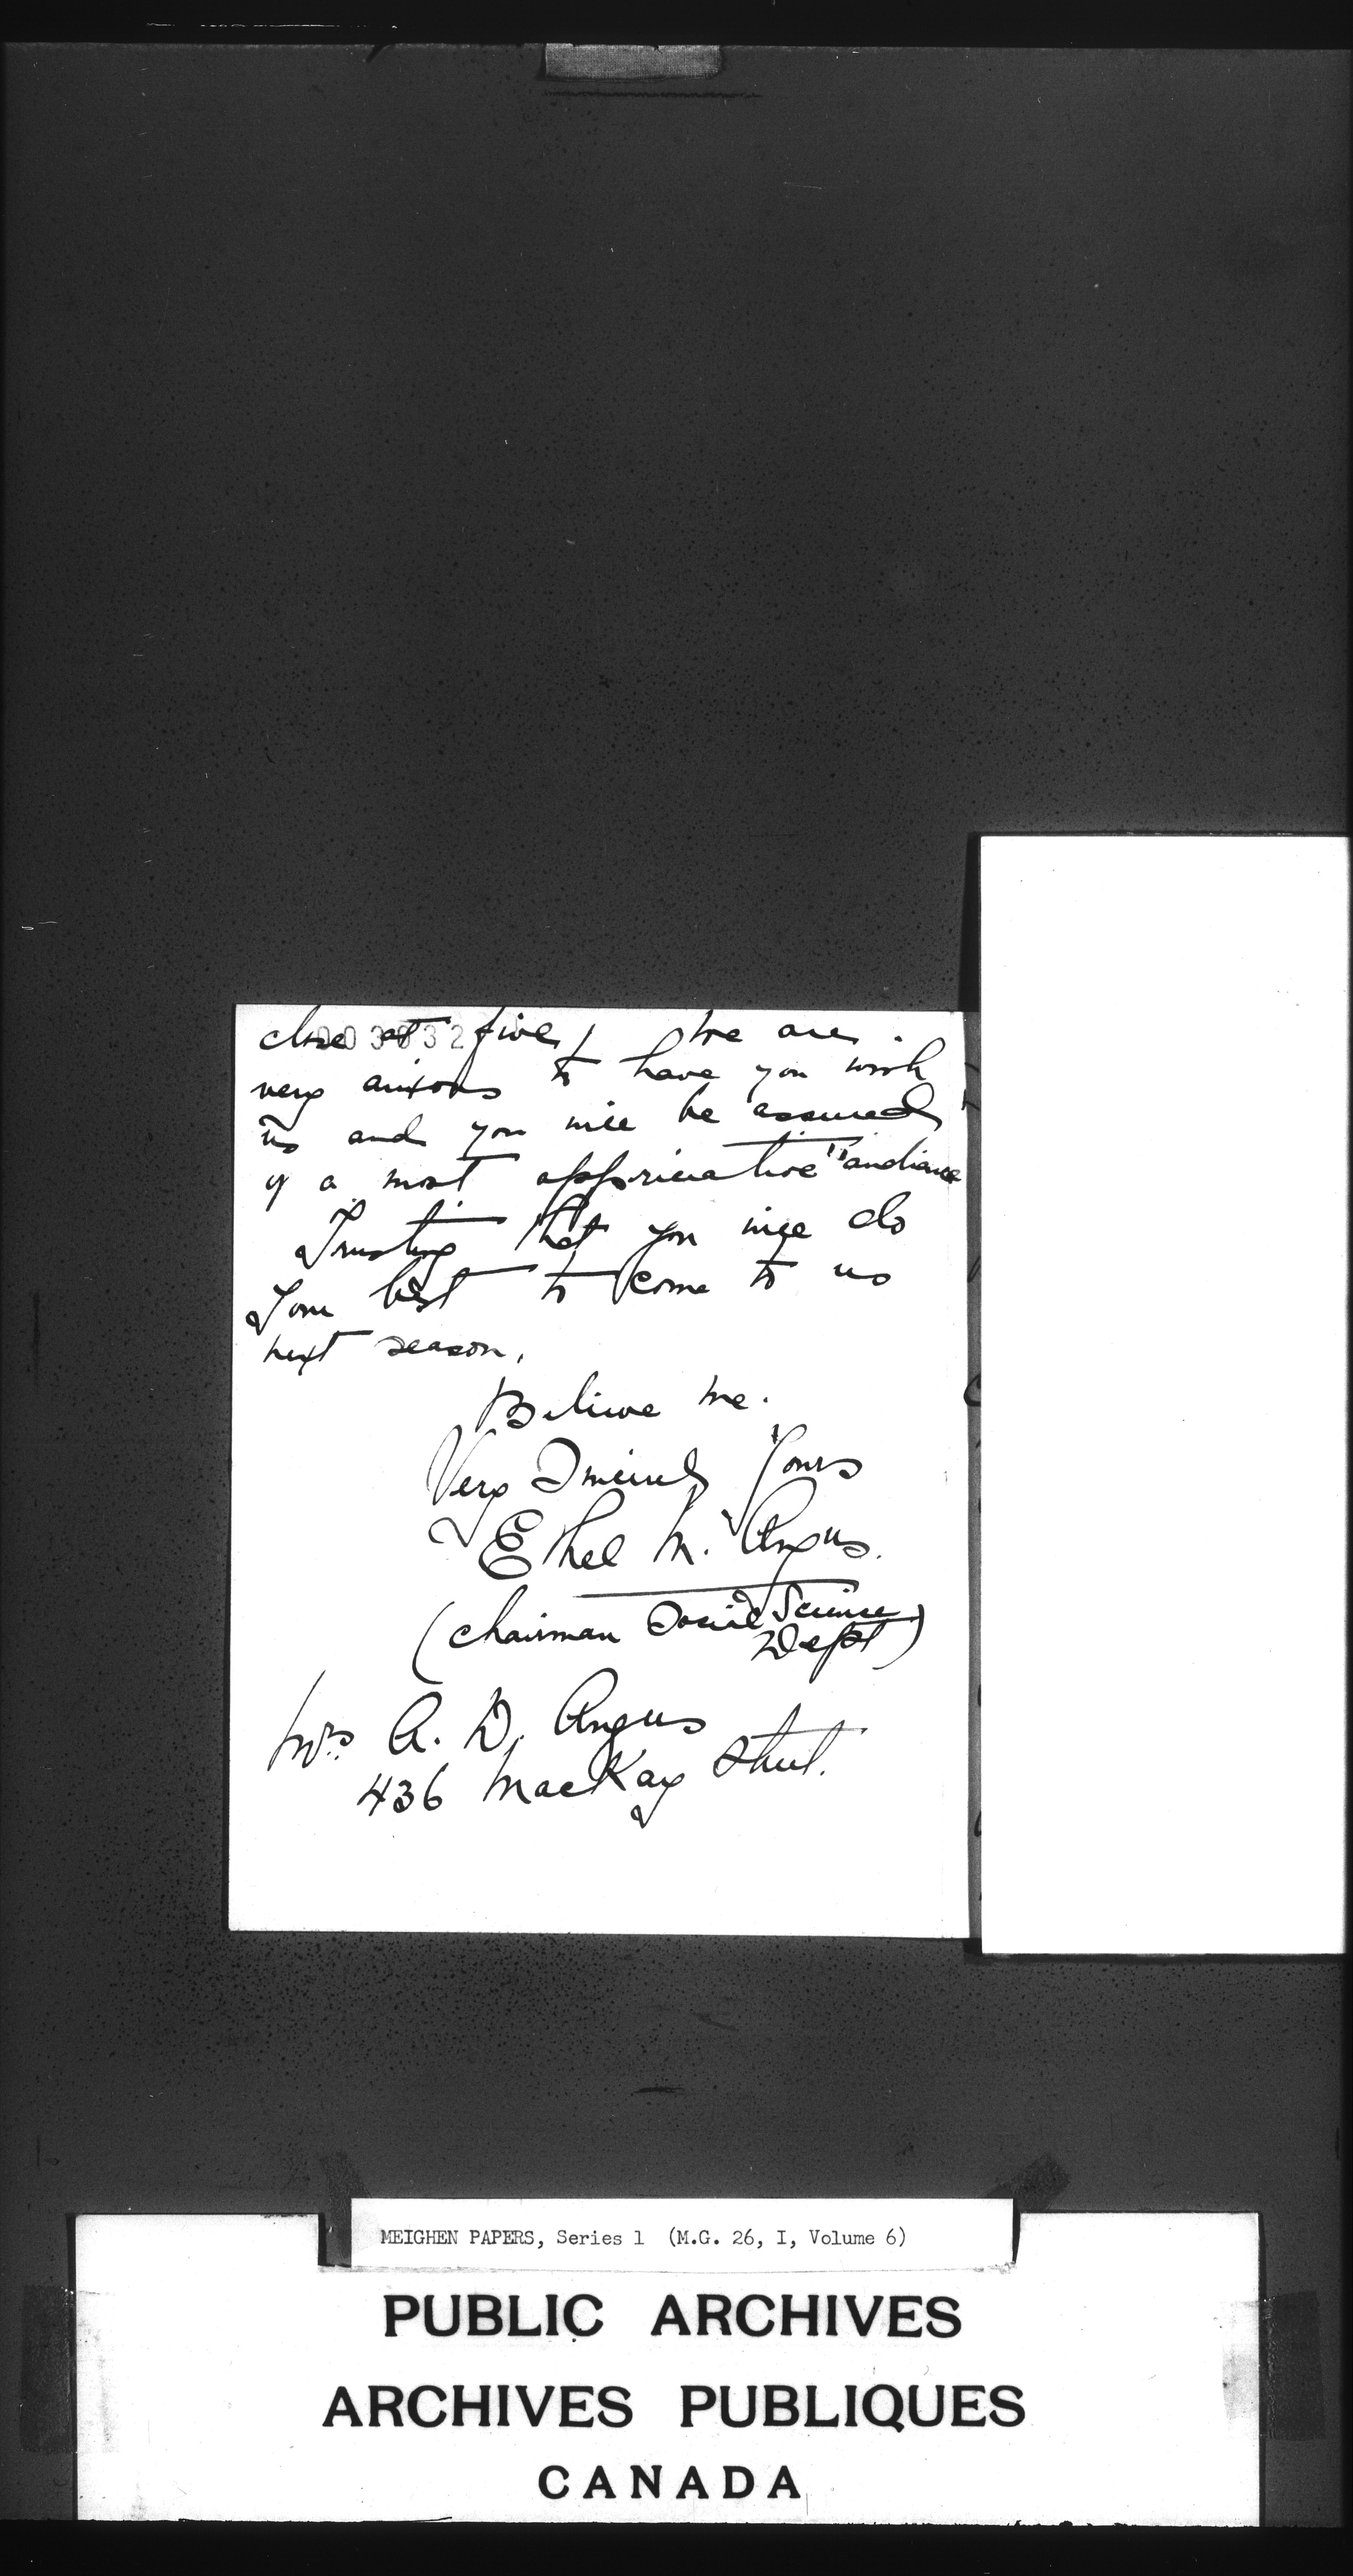 close at five, We are
003832
very anxious to have you with
us and you will be assured
of a most appreciative "audience
Trusting that you will do
your best to come to us
next season,
Believe me.
Very Sincerely Yours
Ethel M. Angus.
(Chairman Social Science
Dept)
Mrs A. D. Angus
436 MacKay Street.
MEIGHEN PAPERS, Series 1 (M.G. 26, I, Volume 6)
PUBLIC ARCHIVES
ARCHIVES PUBLIQUES
CANADA